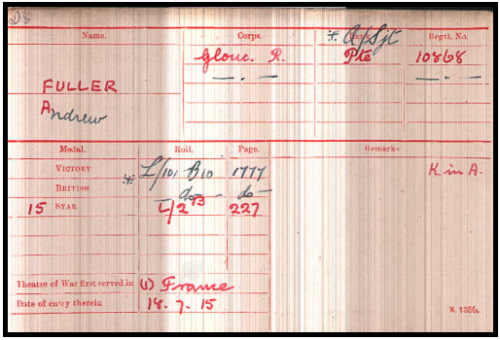 Name. Corps. Rank. Regtl. No.
* A/Sjt
FULLER Glouc. R. Pte 10868
Andrew — . — — . —
Medal. Roll. Page. Remarks
VICTORY * L/101 B10 1777 K in A.
BRITISH — do — — do —
15 STAR L/2 B 227
Theatre of War first served in (1) France
Date of entry therein 18. 7. 15
K 1380.